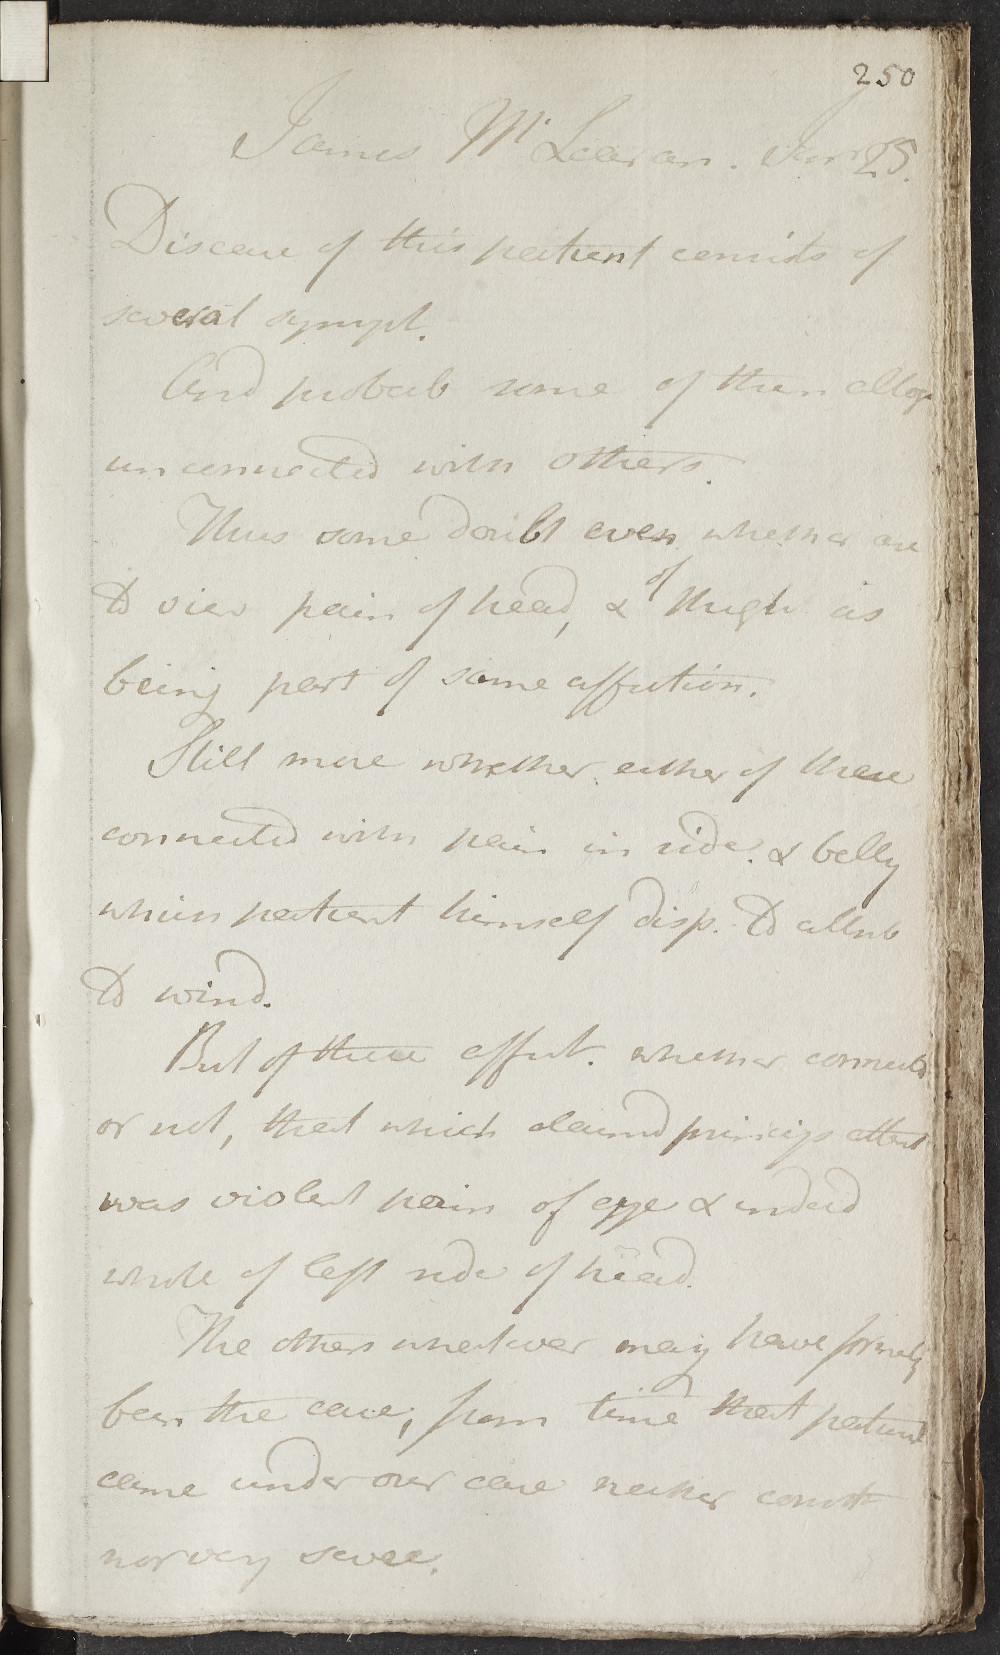 250
James Mc Learan. Jan 25.
Disease of this patient consists of
several sympt.
And probab some of them altog
unconnected with others.
Thus some doubt even whether are
to view pain of head, & of thigh as
being part of same affection.
Still more whether either of these
connected with pain in side. & belly
which patient himself disp. to attrib
to wind.
But of these affect. whether connected
or not, that which claimd princip attent
was violent pain of eye & indeed
whole of left side of head.
The others whatever may have formerly
been the case, from time that patient
came under our care neither const
nor very severe.